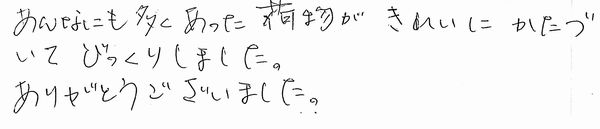 あんなにも多くあった荷物が きれいに かたづ
いて びっくりしました。
ありがとうございました。